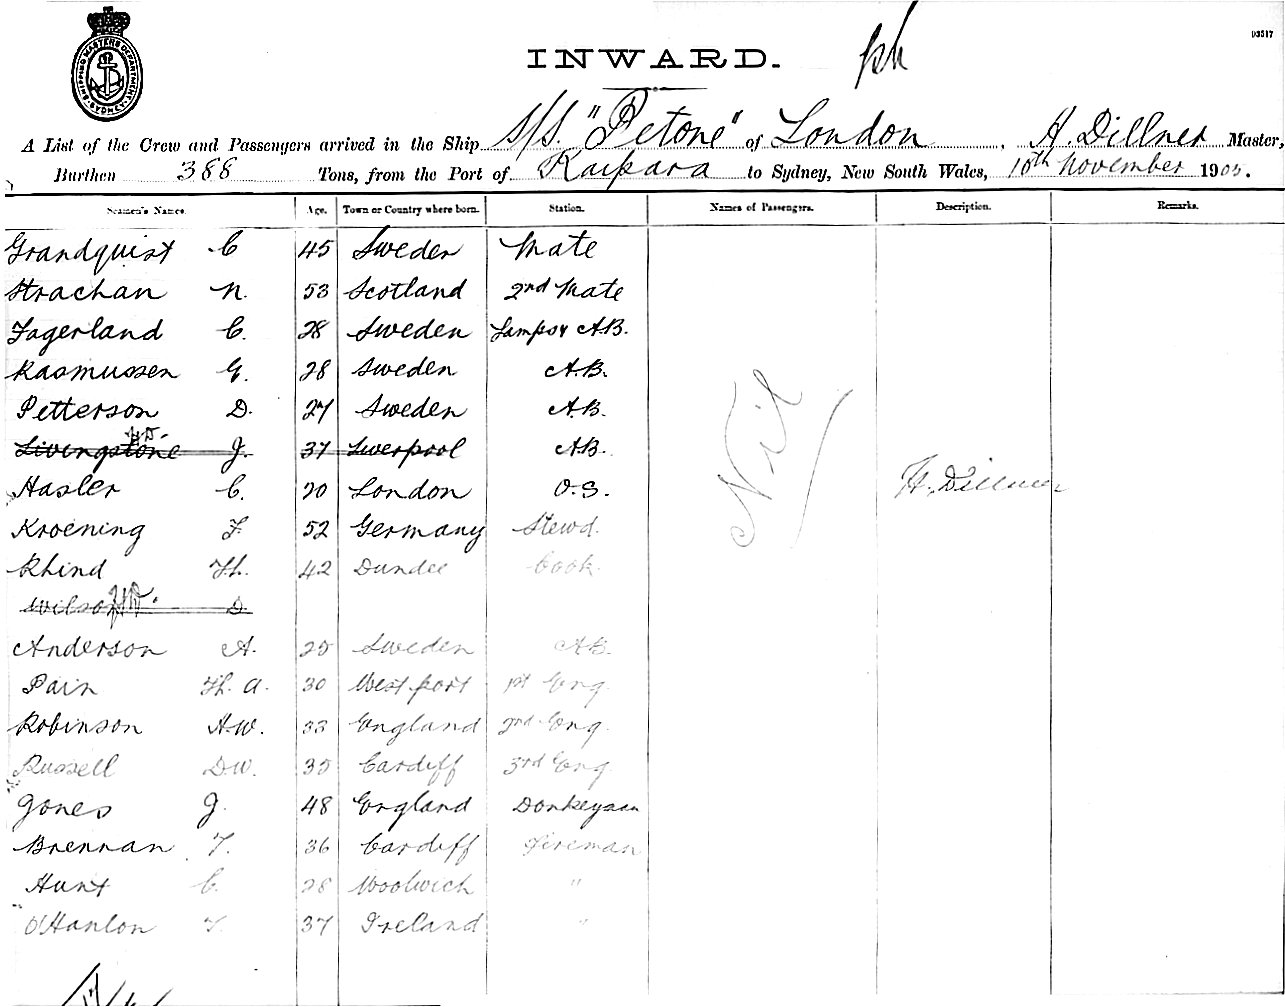 03517
SHIPPING MASTERS DEPARTMENT SYDNEY
INWARD.
A List of the Crew and Passengers arrived in the Ship S/S. "Petone" of London, H. Dillner Master,
Burthen 388 Tons, from the Port of Kaipara to Sydney, New South Wales, 10th November 1905.
Seamen's Names. Age. Town or Country where born. Station. Names of Passengers. Description. Remarks.
Grandquist C 45 Sweden Mate
Strachan N. 53 Scotland 2nd Mate
Fagerland C. 28 Sweden Lamps & A.B.
Rasmussen G. 28 Sweden A.B.
Petterson D. 27 Sweden A.B.
Livingstone J. 37 Liverpool A.B.
Nil
Hasler C. 20 London O.S.
H. Dillner
Kroening F. 52 Germany Stewd.
Rhind Th. 42 Dundee Cook
Wilson D.
Anderson A. 25 Sweden A.B.
Pain Th. A. 30 Westport 1st Eng.
Robinson H.W. 33 England 2nd Eng.
Russell D.W. 35 Cardiff 3rd Eng
Jones J. 48 England Donkeyman
Brennan T. 36 Cardiff Fireman
Hunt C. 28 Woolwich "
O'Hanlon T. 37 Ireland "